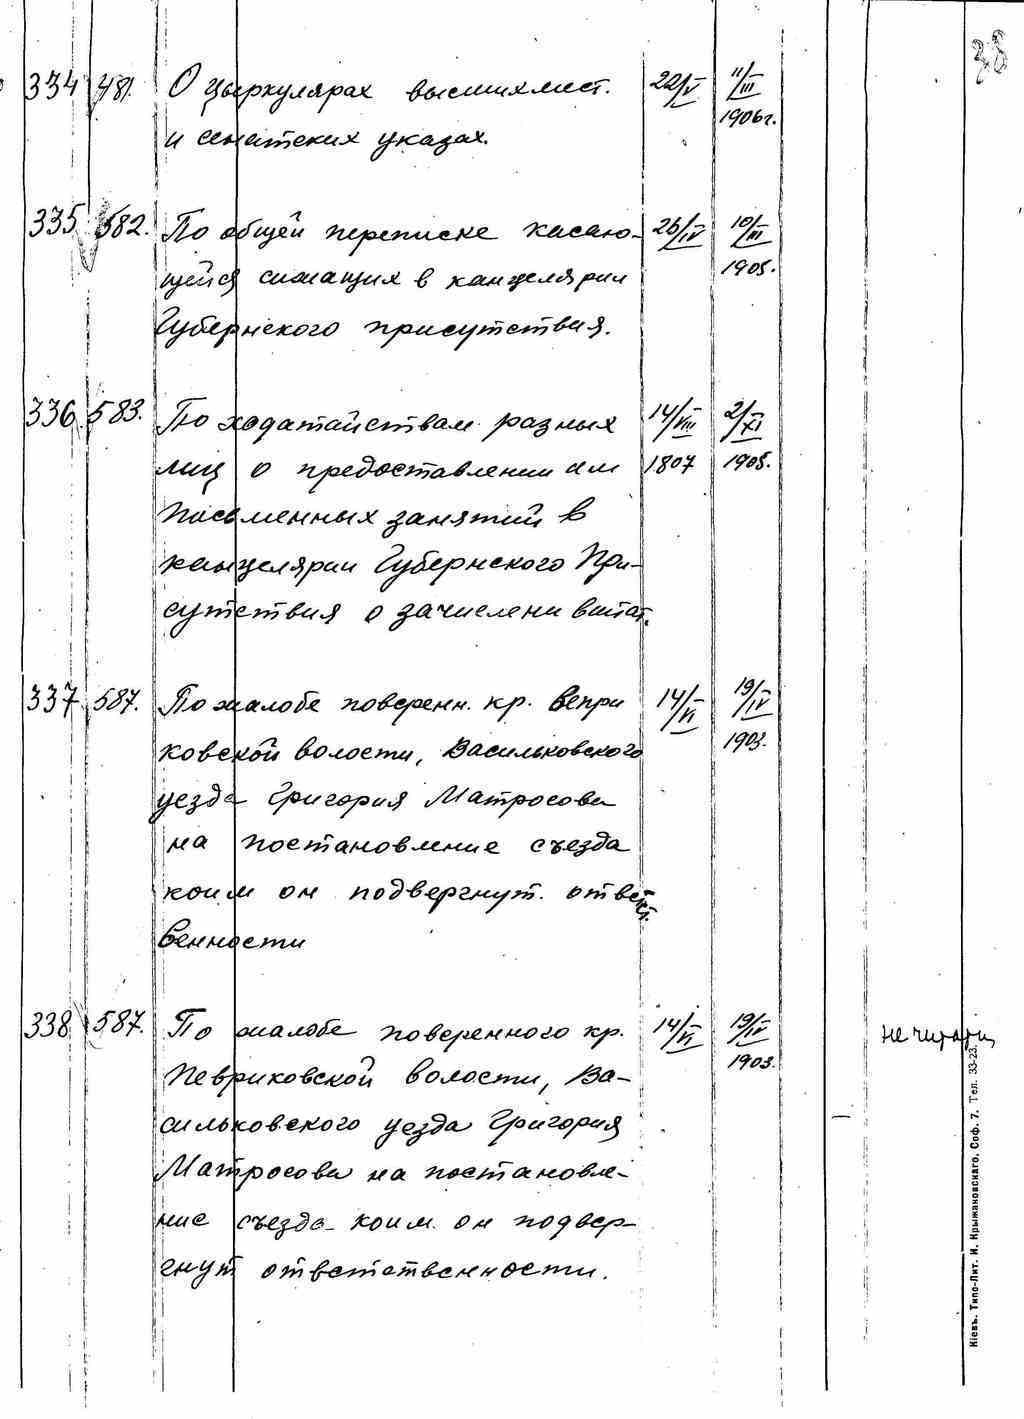 38
334 481. О цыркулярах высших мест. 22/V 11/III
и сенатских указах. 1906 г.
335 582. По общей переписке касаю- 26/IV 10/III
щейся служащих в канцелярии 1905.
Губернского присутствия.
336 583. По ходатайствам разных 14/VIII 2/XI
лиц о предоставлении им 1807 1905.
письменных занятий в
канцелярии Губернского При-
сутствия о зачислени в штат.
337 587. По жалобе поверенн. кр. Вепри 14/VI 19/IV
ковской волости, Васильковского 1903.
уезда Григория Матросова
на постановление съезда
коим он подвергнут. ответст.
венности
338 587. По жалобе поверенного кр. 14/VI 19/IV не читати
Певриковской волости, Ва- 1903.
сильковского уезда Григория
Матросова на постановле-
ние съезда коим он подвер-
гнут ответственности.
Кіевъ. Типо-Лит. И. Крыжановскаго. Соф. 7. Тел. 33-23.